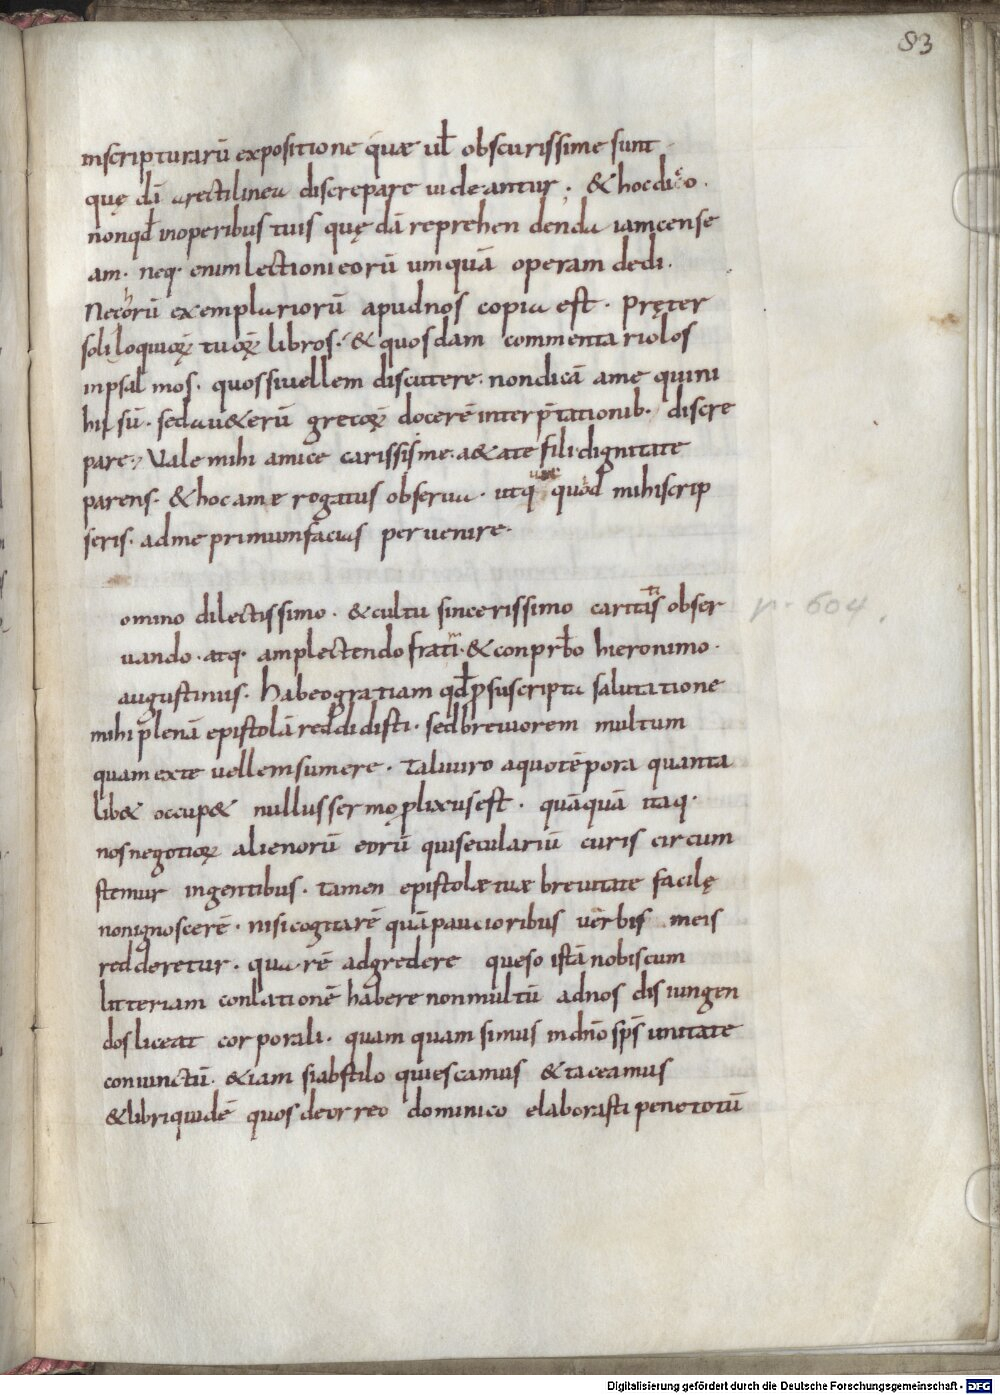 83
inscripturarū expositione quae ul̄ obscurissime sunt
quę dā arectilinea discrepare uideantur. & hoc dico.
nonqd̄ inoperibus tuis quę dā reprehendenda iamcense
am. neq. enim lectioni eorū umquā operam dedi.
Nechorū exemplariorū apudnos copia est. pręter
soliloquioꝝ tuoꝝ libros. & quosdam commentariolos
inpsalmos. quos siuellem discutere. nondicā ame quini
hil sū. sed au&erū grecoꝝ docerē interp̄tationib. discre
pare. Vale mihi amice carissime. a&ate fili. dignitate
parens. & hoc amae rogatus obserua. utq quod mihiscrip
seris. adme primumfacias peruenire.
omino dilectissimo. & cultu sincerissimo caritatis obser
uando. atq. amplectendo fratri. & conprb̄o hieronimo.
augustinus. habeogratiam qd̄ p̱suscripta salutatione
mihi plenā epistolā reddidisti. sed breuiorem multum
quam exte uellemsumere. taliuiro aquotēpora quanta
lib& occup& nullus sermo plixus est. quāquā itaq.
nosnegotioꝝ alienorū eorū quiseculariū curis circum
stemur ingentibus. tamen epistolae tuae breuitate facilę
nonignoscerē. nisi cogitarē quā paucioribus uerbis meis
redderetur. quarē adgredere queso istā nobiscum
litteriam conlationē habere nonmultū adnos disiungen
dos liceat corporali. quam quam simus indn̄o sp̄s unitate
coniunctū. &iam siabstilo quiescamus & taceamus
& libri quidē quos deorreo dominico elaborasti penetotū
p. 604.
Digitalisierung gefördert durch die Deutsche Forschungsgemeinschaft - DFG